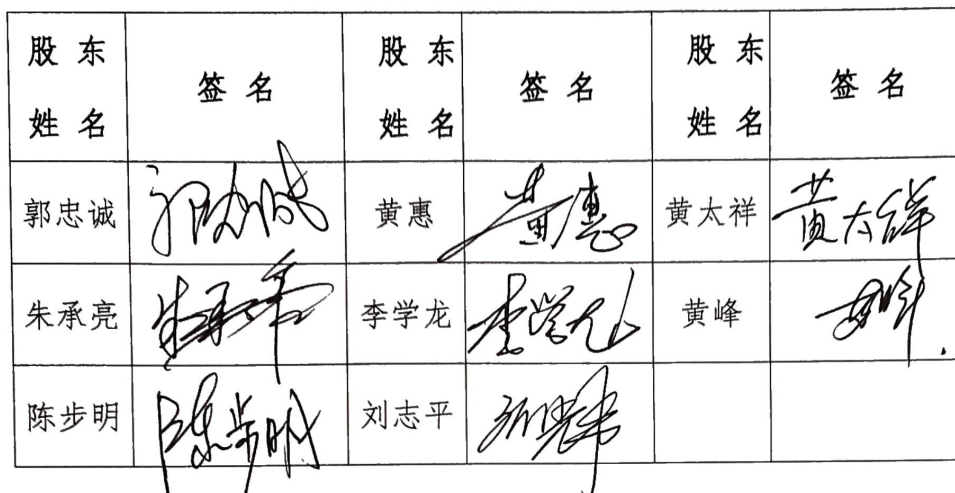 股东姓名 签名 股东姓名 签名 股东姓名 签名
郭忠诚 郭忠诚 黄惠 黄惠 黄太祥 黄太祥
朱承亮 朱承亮 李学龙 李学龙 黄峰 黄峰
陈步明 陈步明 刘志平